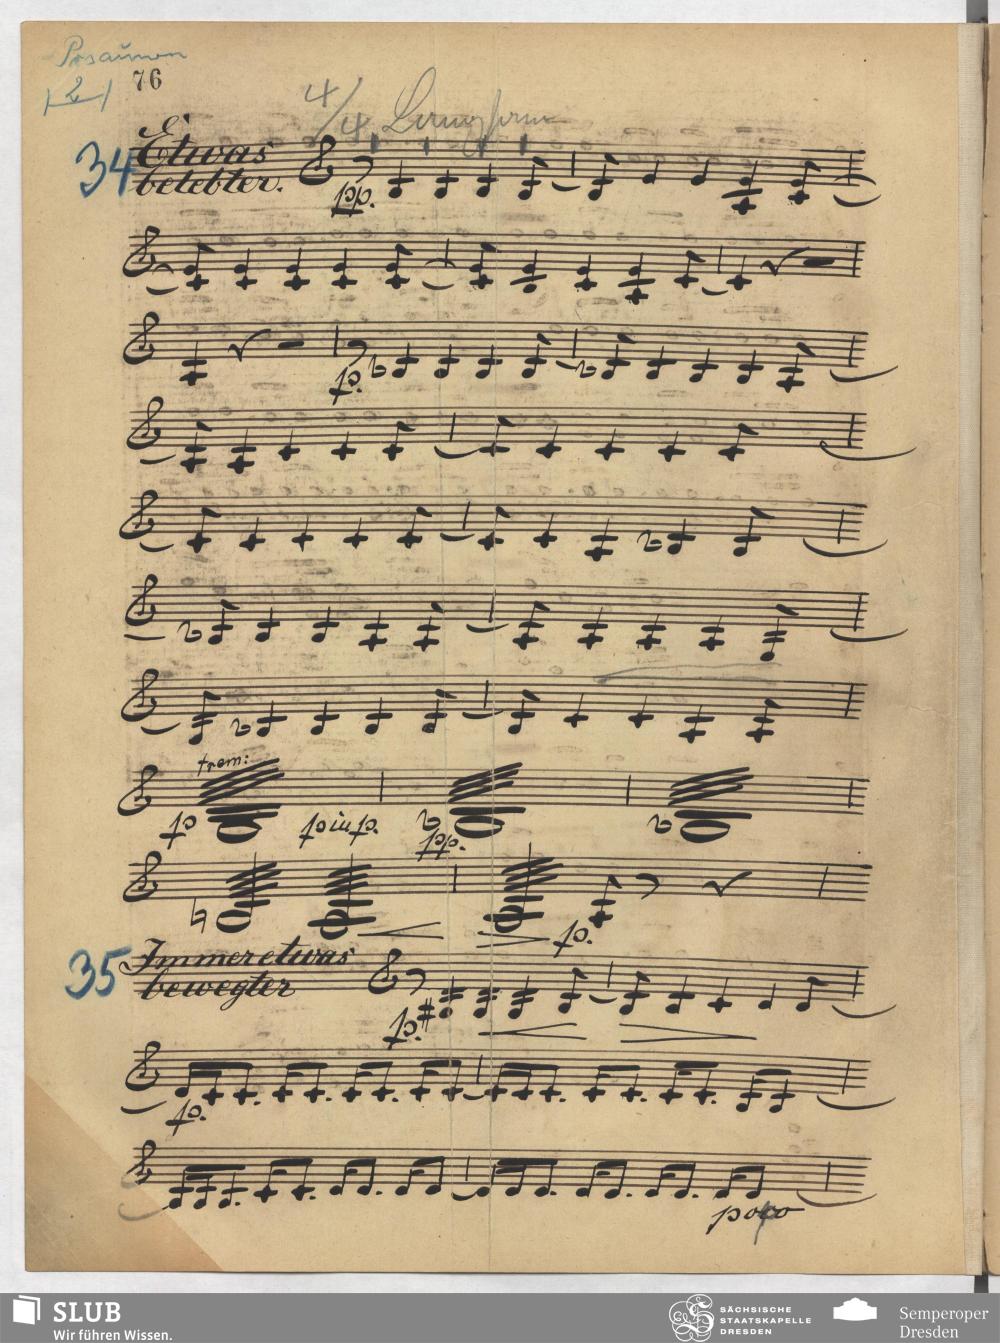 Posaunen
2
76
4/4
34 Etwas
belebter.
pp.
p.
trem:
p più p. pp.
p.
35 Immer etwas
bewegter
p.
p.
poco
SLUB
Wir führen Wissen.
SÄCHSISCHE
STAATSKAPELLE
DRESDEN
Semperoper
Dresden